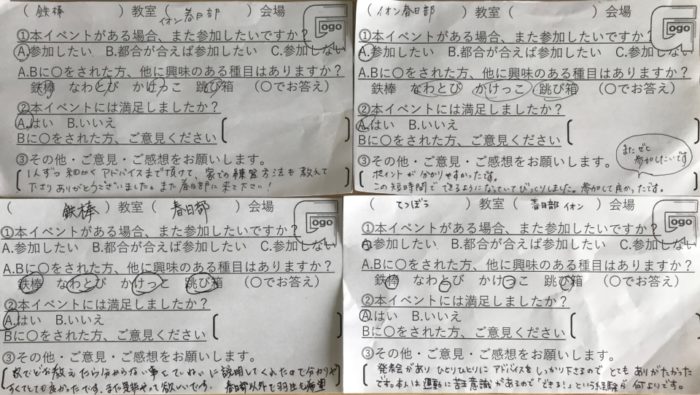 ( 鉄棒 )教室( イオン春日部 )会場
ogo
①本イベントがある場合、また参加したいですか?
A.参加したい B.都合が合えば参加したい C.参加しない
A.Bに〇をされた方、他に興味のある種目はありますか?
鉄棒 なわとび かけっこ 跳び箱 (〇でお答え)
②本イベントには満足しましたか?
A.はい B.いいえ
Bに〇をされた方、ご意見ください
③その他・ご意見・ご感想をお願いします。
1人ずつ細かくアドバイスまで頂けて、家での練習方法も教えて
下さりありがとうございました。また春日部に来て下さい!
( イオン春日部 )会場
ogo
①本イベントがある場合、また参加したいですか?
A.参加したい B.都合が合えば参加したい C.参加しない
A.Bに〇をされた方、他に興味のある種目はありますか?
鉄棒 なわとび かけっこ 跳び箱 (〇でお答え)
②本イベントには満足しましたか?
A.はい B.いいえ
Bに〇をされた方、ご意見ください
③その他・ご意見・ご感想をお願いします。
またぜひ
参加したいです
ポイントが分かりやすかったです。
この短時間でできるようになっていてびっくりしました。参加して良かったです。
( 鉄棒 )教室( 春日部 )会場
ogo
①本イベントがある場合、また参加したいですか?
A.参加したい B.都合が合えば参加したい C.参加しない
A.Bに〇をされた方、他に興味のある種目はありますか?
鉄棒 なわとび かけっこ 跳び箱 (〇でお答え)
②本イベントには満足しましたか?
A.はい B.いいえ
Bに〇をされた方、ご意見ください
③その他・ご意見・ご感想をお願いします。
教えたら分からない事をていねいに説明してくれたので分かりや
すくてとても良かったです。また是非やって欲しいです。 春日部以外でも
( てつぼう )教室( 春日部イオン )会場
ogo
①本イベントがある場合、また参加したいですか?
A.参加したい B.都合が合えば参加したい C.参加しない
A.Bに〇をされた方、他に興味のある種目はありますか?
鉄棒 なわとび かけっこ 跳び箱 (〇でお答え)
②本イベントには満足しましたか?
A.はい B.いいえ
Bに〇をされた方、ご意見ください
③その他・ご意見・ご感想をお願いします。
発表会があり ひとりひとりにアドバイスをしっかり下さるので とてもありがたかった
です。本人は運動に苦手意識があるので「できる!」という経験が何よりです。